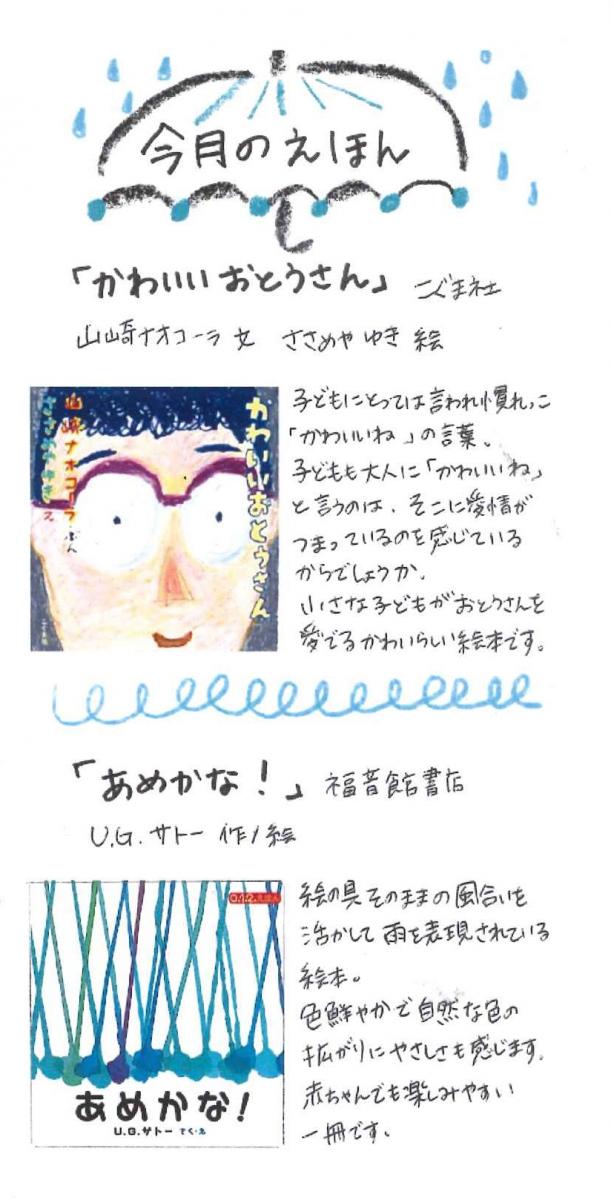 今月のえほん
「かわいいおとうさん」 こぐま社
山崎ナオコーラ 文 ささめや ゆき 絵
かわいいおとうさん
山崎ナオコーラ ぶん
ささめやゆき え
こぐま社
子どもにとっては言われ慣れっこ
「かわいいね」の言葉。
子どもも大人に「かわいいね」
と言うのは、そこに愛情が
つまっているのを感じている
からでしょうか。
小さな子どもがおとうさんを
愛でるかわいらしい絵本です。
「あめかな!」 福音館書店
U.G.サトー 作/絵
0.1.2.えほん
あめかな!
U.G.サトー さく・え
絵の具そのままの風合いを
活かして雨を表現されている
絵本。
色鮮やかで自然な色の
拡がりにやさしさも感じます。
赤ちゃんでも楽しみやすい
一冊です。